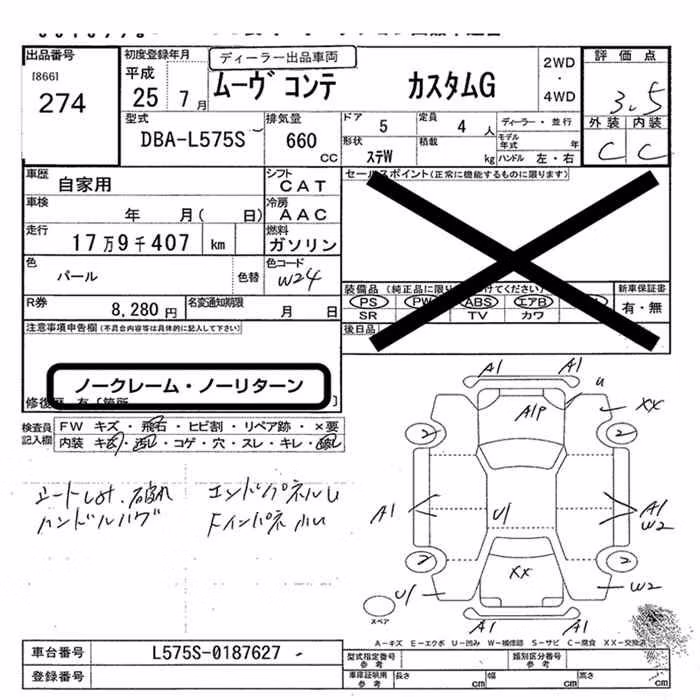 出品番号
[866]
274
初度登録年月
平成
25 7月
ディーラー出品車両
ムーヴ コンテ カスタムG
2WD
・
4WD
評価点
3.5
外装 内装
C C
型式
DBA-L575S
排気量
660
CC
ドア 5
定員 4 人
ディーラー・並行
モデル年式 年
形状 ステW
積載 kg
ハンドル 左・右
車歴
自家用
シフト
CAT
セールスポイント(正常に機能するものに限ります)
車検
年 月( 日)
冷房
AAC
走行
17万9千407 km
燃料
ガソリン
色
パール
色替
色コード
W24
装備品 (純正品に限り
けてください)
新車保証書
PS PW ABS エアB
有・無
SR TV カワ
R券
8,280円
名変通知期限
月 日
後日品
注意事項申告欄(不具合内容等は具体的に記入して下さい)
ノークレーム・ノーリターン
修復歴 有 [箇所 ]
検査員
記入欄
FW キズ・飛石・ヒビ割・リペア跡・×要
内装 キズ・汚レ・コゲ・穴・スレ・キレ・破レ
シートしみ.破れ エンドパネルU
ハンドルハゲ
A1 A1
A1P
U
XX
2 2
A1
U1
A1
W2
2 2
XX
U1
W2
A1 A1
スペア
A−キズ E−エクボ U−凹み W−補修跡 S−サビ C−腐食 XX−交換済
車台番号
L575S-0187627
型式指定番号
参考
類別区分番号
参考
登録番号
車庫証明用
参考
長さ cm
幅 cm
高さ cm